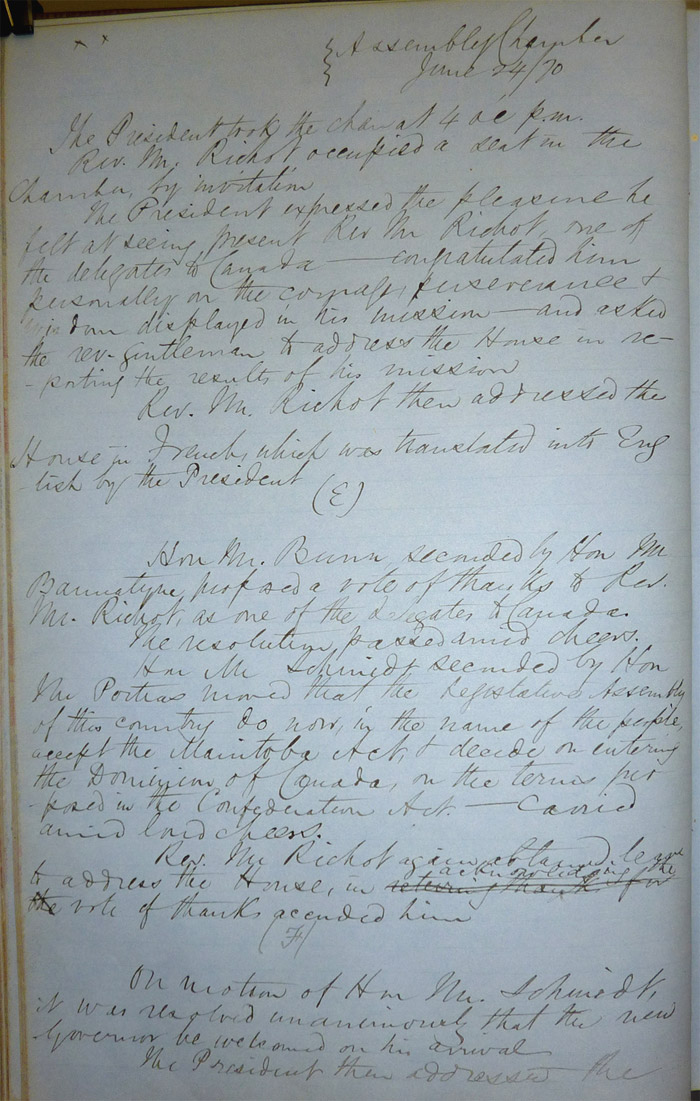 x x
Assembly Chamber
June 24/70
The President took the chair at 4 o'c p.m.
Rev. Mr. Richot occupied a seat in the
Chamber, by invitation
The President expressed the pleasure he
felt at seeing present Rev Mr Richot, one of
the delegates to Canada — congratulated him
personally on the courage, perseverance &
wisdom displayed in his mission — and asked
the rev. gentleman to address the House in re-
-porting the results of his mission
Rev. Mr. Richot then addressed the
House in French, which was translated into Eng
lish by the President
(E)
Hon Mr. Bunn, seconded by Hon Mr
Bannatyne, proposed a vote of thanks to Rev.
Mr. Richot, as one of the delegates to Canada.
The resolution passed amid cheers.
Hon Mr Schmidt seconded by Hon
Mr Poitras moved that the Legislative Assembly
of this country do now, in the name of the people,
accept the Manitoba Act, & decide on entering
the Dominion of Canada, on the terms pro
posed in the Confederation Act. — Carried
amid loud cheers.
Rev. Mr Richot again obtained leave
to address the House, in returning thanks for acknowledging the
the vote of thanks accorded him
(F)
On motion of Hon Mr. Schmidt,
it was resolved unanimously that the new
Governor be welcomed on his arrival
The President then addressed the